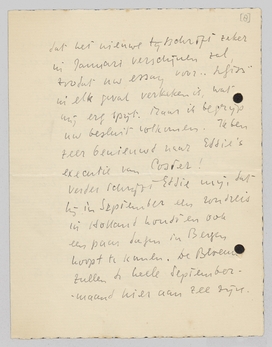 dat het nieuwe tijdschrift zeker
in Januari verschijnen zal
zoodat uw essay voor
in elk geval verkeken is, wat
mij erg spijt. Maar ik begrijp
uw besluit volkomen. Ik ben
zeer benieuwd naar Eddie's
executie van Coster!
Verder schrijft Eddie mij dat
hij in September een rondreis
in Holland houdt en ook
een paar dagen in Bergen
hoopt te komen. De
zullen de heele September-
maand hier aan zee zijn.